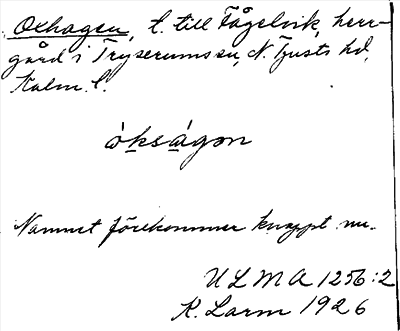 Oxhagen, t. till Fågelvik, herr-
gård i Tryserums sn, N. Tjusts hd,
Kalm. l.
òksàgən
Namnet förekommer knappt nu.
ULMA 1256:2
K. Larm 1926